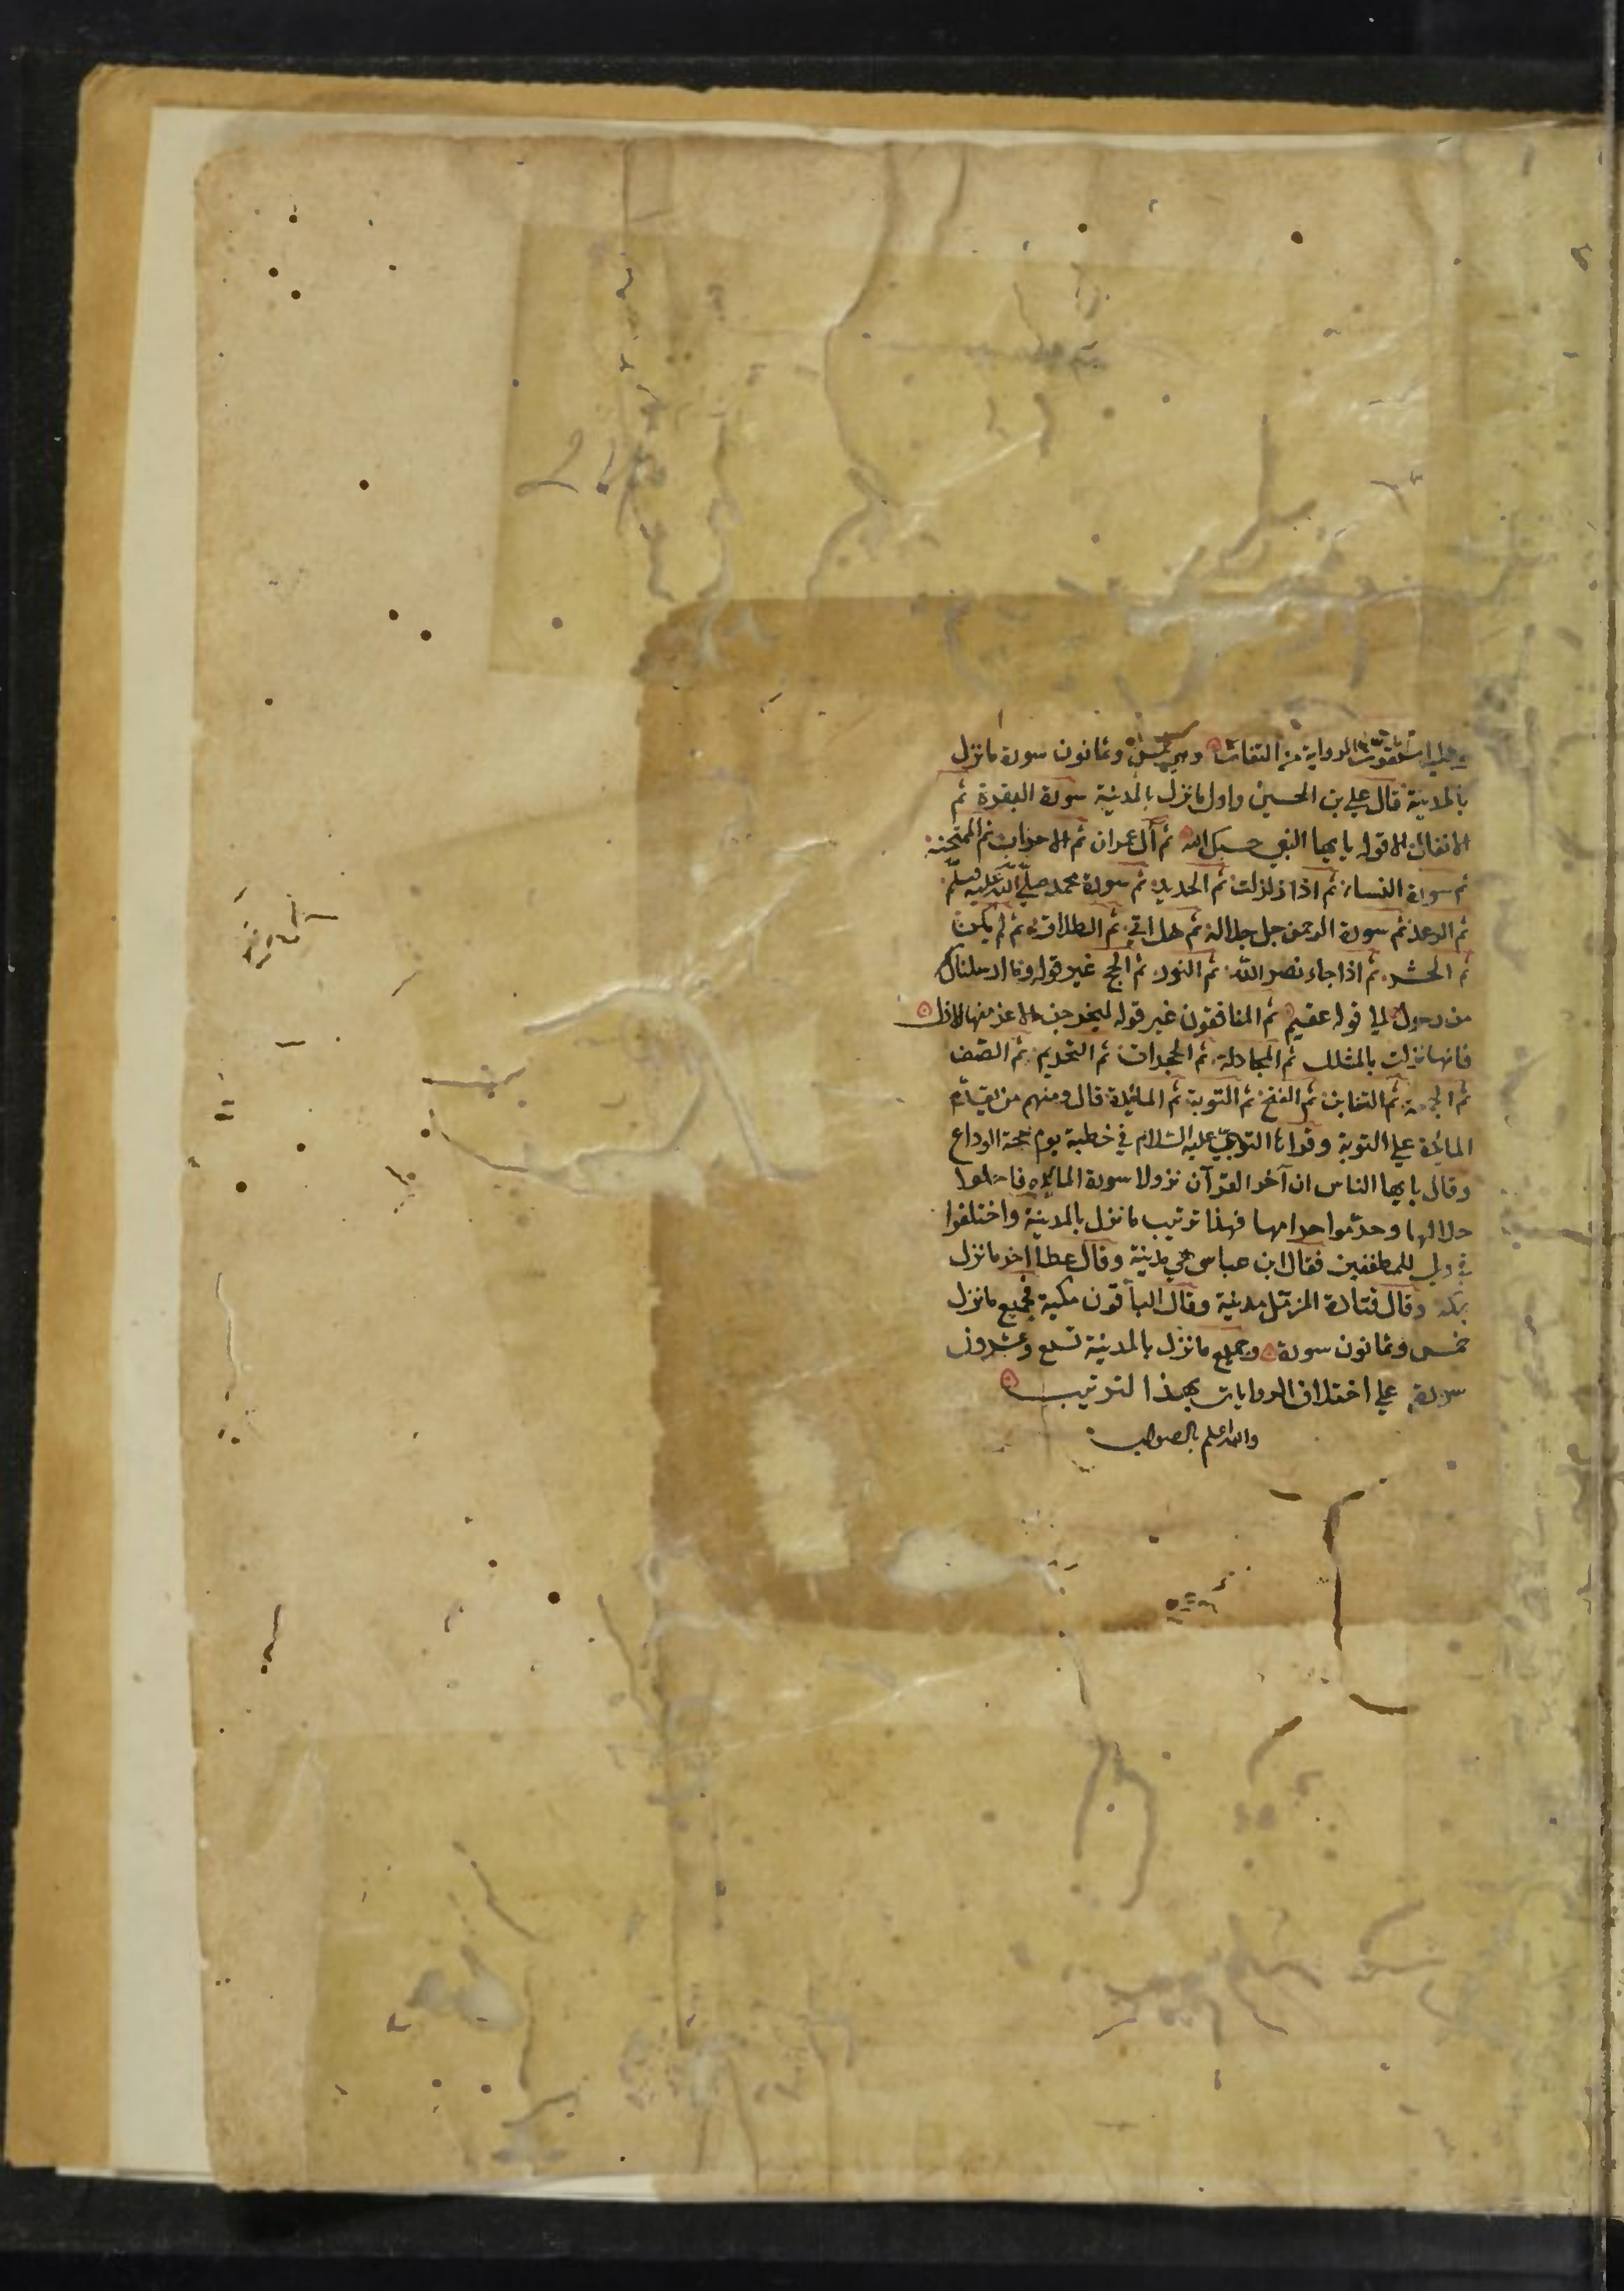 وعليه استقرت الرواية من الثقات وهي خمس وثمانون سورة ما نزل
بالمدينة قال علي بن الحسين واول ما نزل بالمدينة سورة البقرة ثم
الانفال الا قوله يا يها النبي حسبك الله ثم آل عمران ثم الاحزاب ثم الممتحنة
ثم سورة النساء ثم اذا زلزلت ثم الحديد ثم سورة محمد صلى الله عليه وسلم
ثم الرعد ثم سورة الرحمن جل جلاله ثم هل اتى ثم الطلاق ثم لم يكن
ثم الحشر ثم اذا جاء نصر الله ثم النور ثم الحج غير قوله وما ارسلناك
من رسول الى قوله عقيم ثم المنافقون غير قوله ليخرجن الاعز منها الاذل
فانها نزلت بالمثلل ثم المجادلة ثم الحجرات ثم التحريم ثم الصف
ثم الجمعة ثم التغابن ثم الفتح ثم التوبة ثم المائدة قال ومنهم من يقدم
المائدة على التوبة وقرأ النبي عليه السلام في خطبة يوم حجة الوداع
وقال يا يها الناس ان آخر القرآن نزولا سورة المائده فاحلوا
حلالها وحرّموا حرامها فهذا ترتيب ما نزل بالمدينة واختلفوا
في ويل للمطففين فقال ابن عباس هي مدينة وقال عطا اخر ما نزل
بمكة وقال قتادة المزمّل مدينة وقال الباقون مكية فجميع ما نزل
خمس وثمانون سورة وجميع ما نزل بالمدينة تسع وعشرون
سورة على اختلاف الروايات بهذا الترتيب
والله اعلم بالصواب